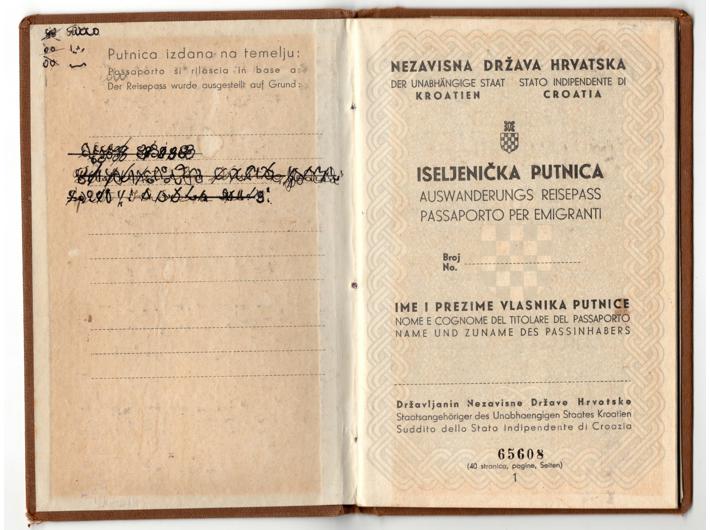 Putnica izdana na temelju:
Passaporto si rilascia in base a:
Der Reisepass wurde ausgestellt auf Grund:
NEZAVISNA DRŽAVA HRVATSKA
DER UNABHÄNGIGE STAAT STATO INDIPENDENTE DI
KROATIEN CROATIA
ISELJENIČKA PUTNICA
AUSWANDERUNGS REISEPASS
PASSAPORTO PER EMIGRANTI
Broj
No.
IME I PREZIME VLASNIKA PUTNICE
NOME E COGNOME DEL TITOLARE DEL PASSAPORTO
NAME UND ZUNAME DES PASSINHABERS
Državljanin Nezavisne Države Hrvatske
Staatsangehöriger des Unabhaengigen Staates Kroatien
Suddito dello Stato Indipendente di Croazia
65608
(40 stranica, pagine, Seiten)
1